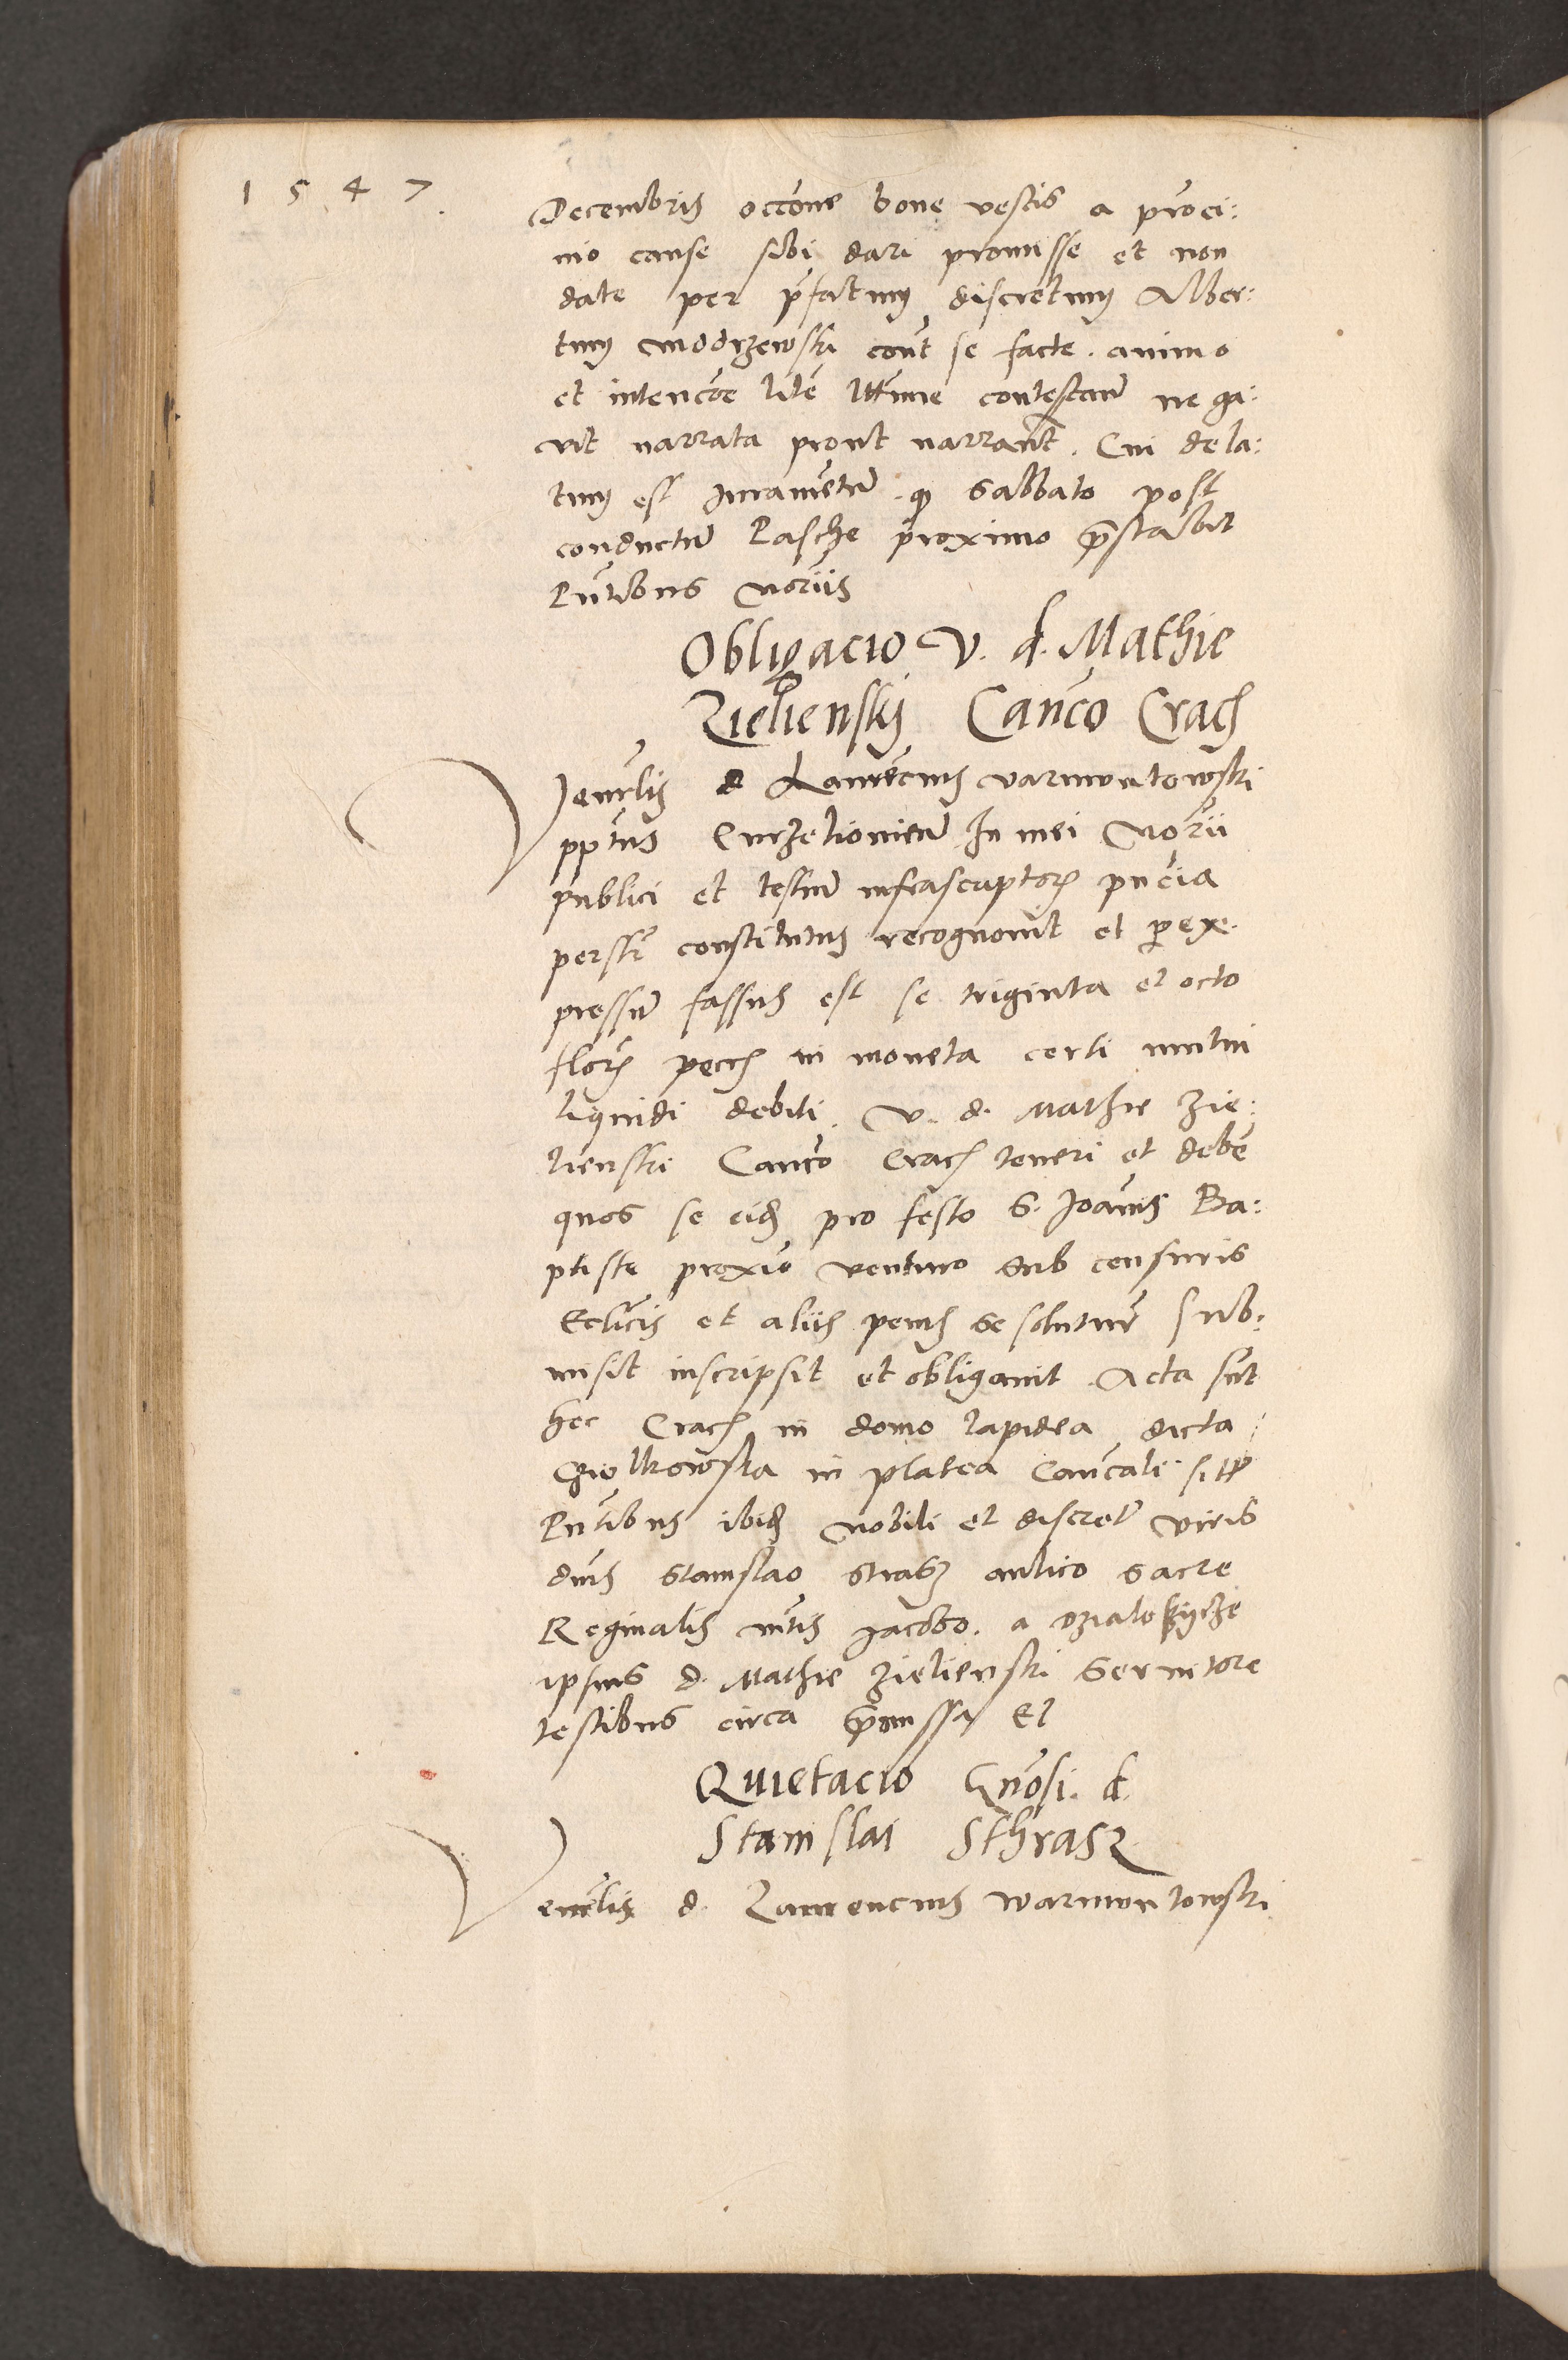 1 5 4 7
Decembris occōne bone vestis a prōci:
nio cause sibi dari promisse et non
date per p̄fatum discretum Alber:
tum Modrzewski cont̄ se facte. animo
et intencōe litē lttīme contestan̄ nega:
vit narrata prout narrant̄. Cui dela:
tum est Iuramētū q Sabbato post
conductū Pasche proximo p̄stabit
Pn̄tibus Nōriis
Obligacio V. d. Mathie
Zielienskj Canc̄o Crac
Venr̄lis d Laurēcius Varmuntowski
pp̄tus Curzelioviēn In mei Nōrii
publici et testiū infrascriptor pn̄cia
persr̄ constitutus recognovit et p exe
pressū fassus est se triginta et octo
flor pecc in moneta certi mutui
liquidi debiti. V. d. Mathie Zie:
lienski Canc̄o Crac teneri et debē
quos se eid pro festo S. Joān̄is Ba:
ptiste prox̄io venturo Sub censuris
Eccl̄icis et aliis penis se soluturū sub:
misit inscripsit et obligavit Acta sūt
hec Crac in domo lapidea dicta
Cziolkowska in platea Can̄cali sitt
Pn̄tibus ibid Nobili et discret̄ viris
dnis Stanislao Strasz aulico Sacre
Reginalis mt̄is Jacobo. a
ipsius d. Mathie Zielienski Servitore
testibus circa p̄missa Et
Quietacio Gn̄osi. d.
Stanislai Sthrasz
Venr̄lis d. Laurencius Warmuntowski